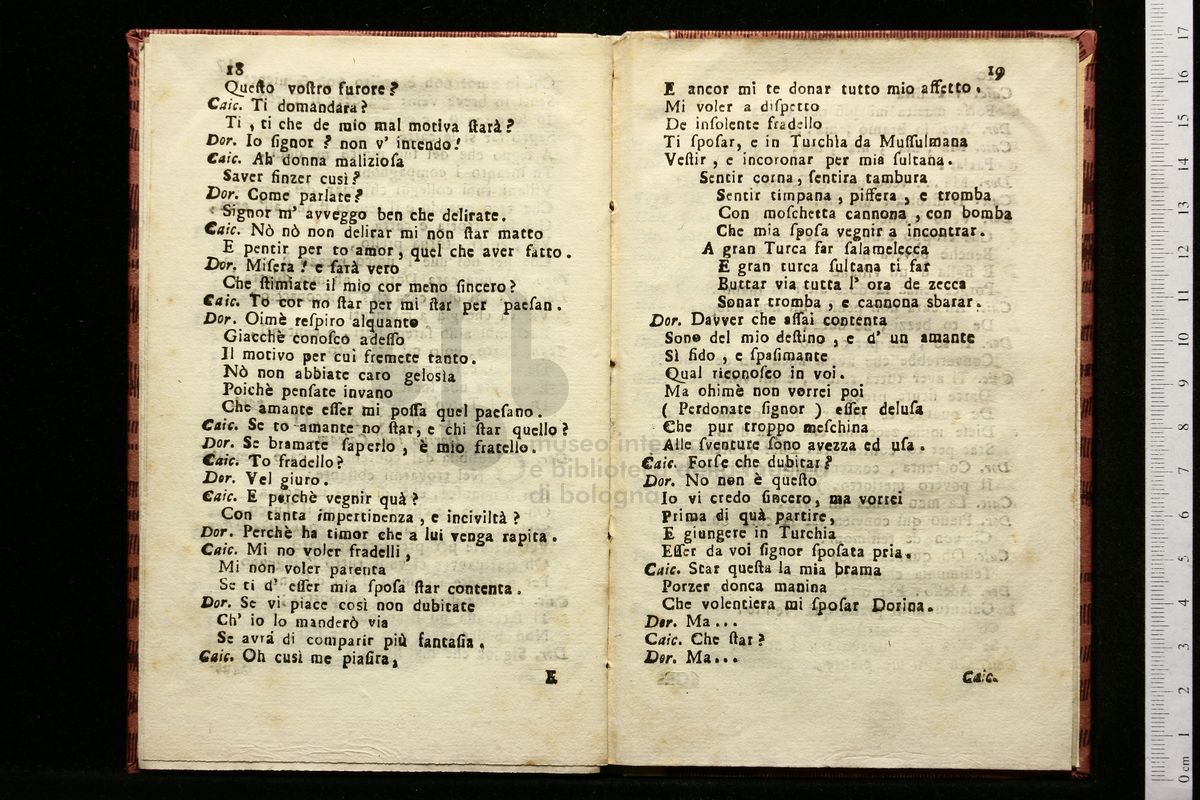 18
Queſto voſtro furore?
Caic. Ti domandara?
Ti, ti che de mio mal motiva ſtarà?
Dor. Io ſignor? non v' intendo!
Caic. Ah donna malizioſa
Saver finzer cusì?
Dor. Come parlate?
Signor m' avveggo ben che delirate.
Caic. Nò nò non delirar mi nòn ſtar matto
E pentir per to amor, quel che aver fatto.
Dor. Miſera! e ſarà vero
Che ſtimiate il mio cor meno ſincero?
Caic. To cor no ſtar per mi ſtar per paeſan.
Dor. Oimè reſpiro alquanto
Giacchè conoſco adeſſo
Il motivo per cui fremete tanto.
Nò non abbiate caro geloſia
Poichè penſate invano
Che amante eſſer mi poſſa quel paeſano.
Caic. Se to amante no ſtar, e chi ſtar quello?
Dor. Se bramate ſaperlo, è mio fratello.
Caic. To fradello?
Dor. Vel giuro.
Caic. E perchè vegnir quà?
Con tanta impertinenza, e inciviltà?
Dor. Perchè ha timor che a lui venga rapita.
Caic. Mi no voler fradelli,
Mi nòn voler parenta
Se ti d' eſſer mia ſpoſa ſtar contenta.
Dor. Se vi piace così non dubitate
Ch' io lo manderò via
Se avrà di comparir più fantaſia.
Caic. Oh cusì me piaſira,
E
19
E ancor mi te donar tutto mio affetto.
Mi voler a diſpetto
De inſolente fradello
Ti ſpoſar, e in Turchìa da Muſſulmana
Veſtir, e incoronar per mia ſultana.
Sentir corna, ſentira tambura
Sentir timpana, piffera, e tromba
Con moſchetta cannona, con bomba
Che mia ſpoſa vegnir a incontrar.
A gran Turca far ſalamelecca
E gran turca ſultana ti far
Buttar via tutta l' ora de zecca
Sonar tromba, e cannona sbarar.
Dor. Davver che aſſai contenta
Sono del mio deſtino, e d' un amante
Sì fido, e ſpaſimante
Qual riconoſco in voi.
Ma ohimè non vorrei poi
( Perdonate ſignor ) eſſer deluſa
Che pur troppo meſchina
Alle ſventure ſono avezza ed uſa.
Caic. Forſe che dubitar?
Dor. No non è queſto
Io vi credo ſincero, ma vorrei
Prima di quà partire,
E giungere in Turchia
Eſſer da voi ſignor ſpoſata pria.
Caic. Star queſta la mia brama
Porzer donca manina
Che volentiera mi ſpoſar Dorina.
Dor. Ma...
Caic. Che ſtar?
Dor. Ma...
Caic.